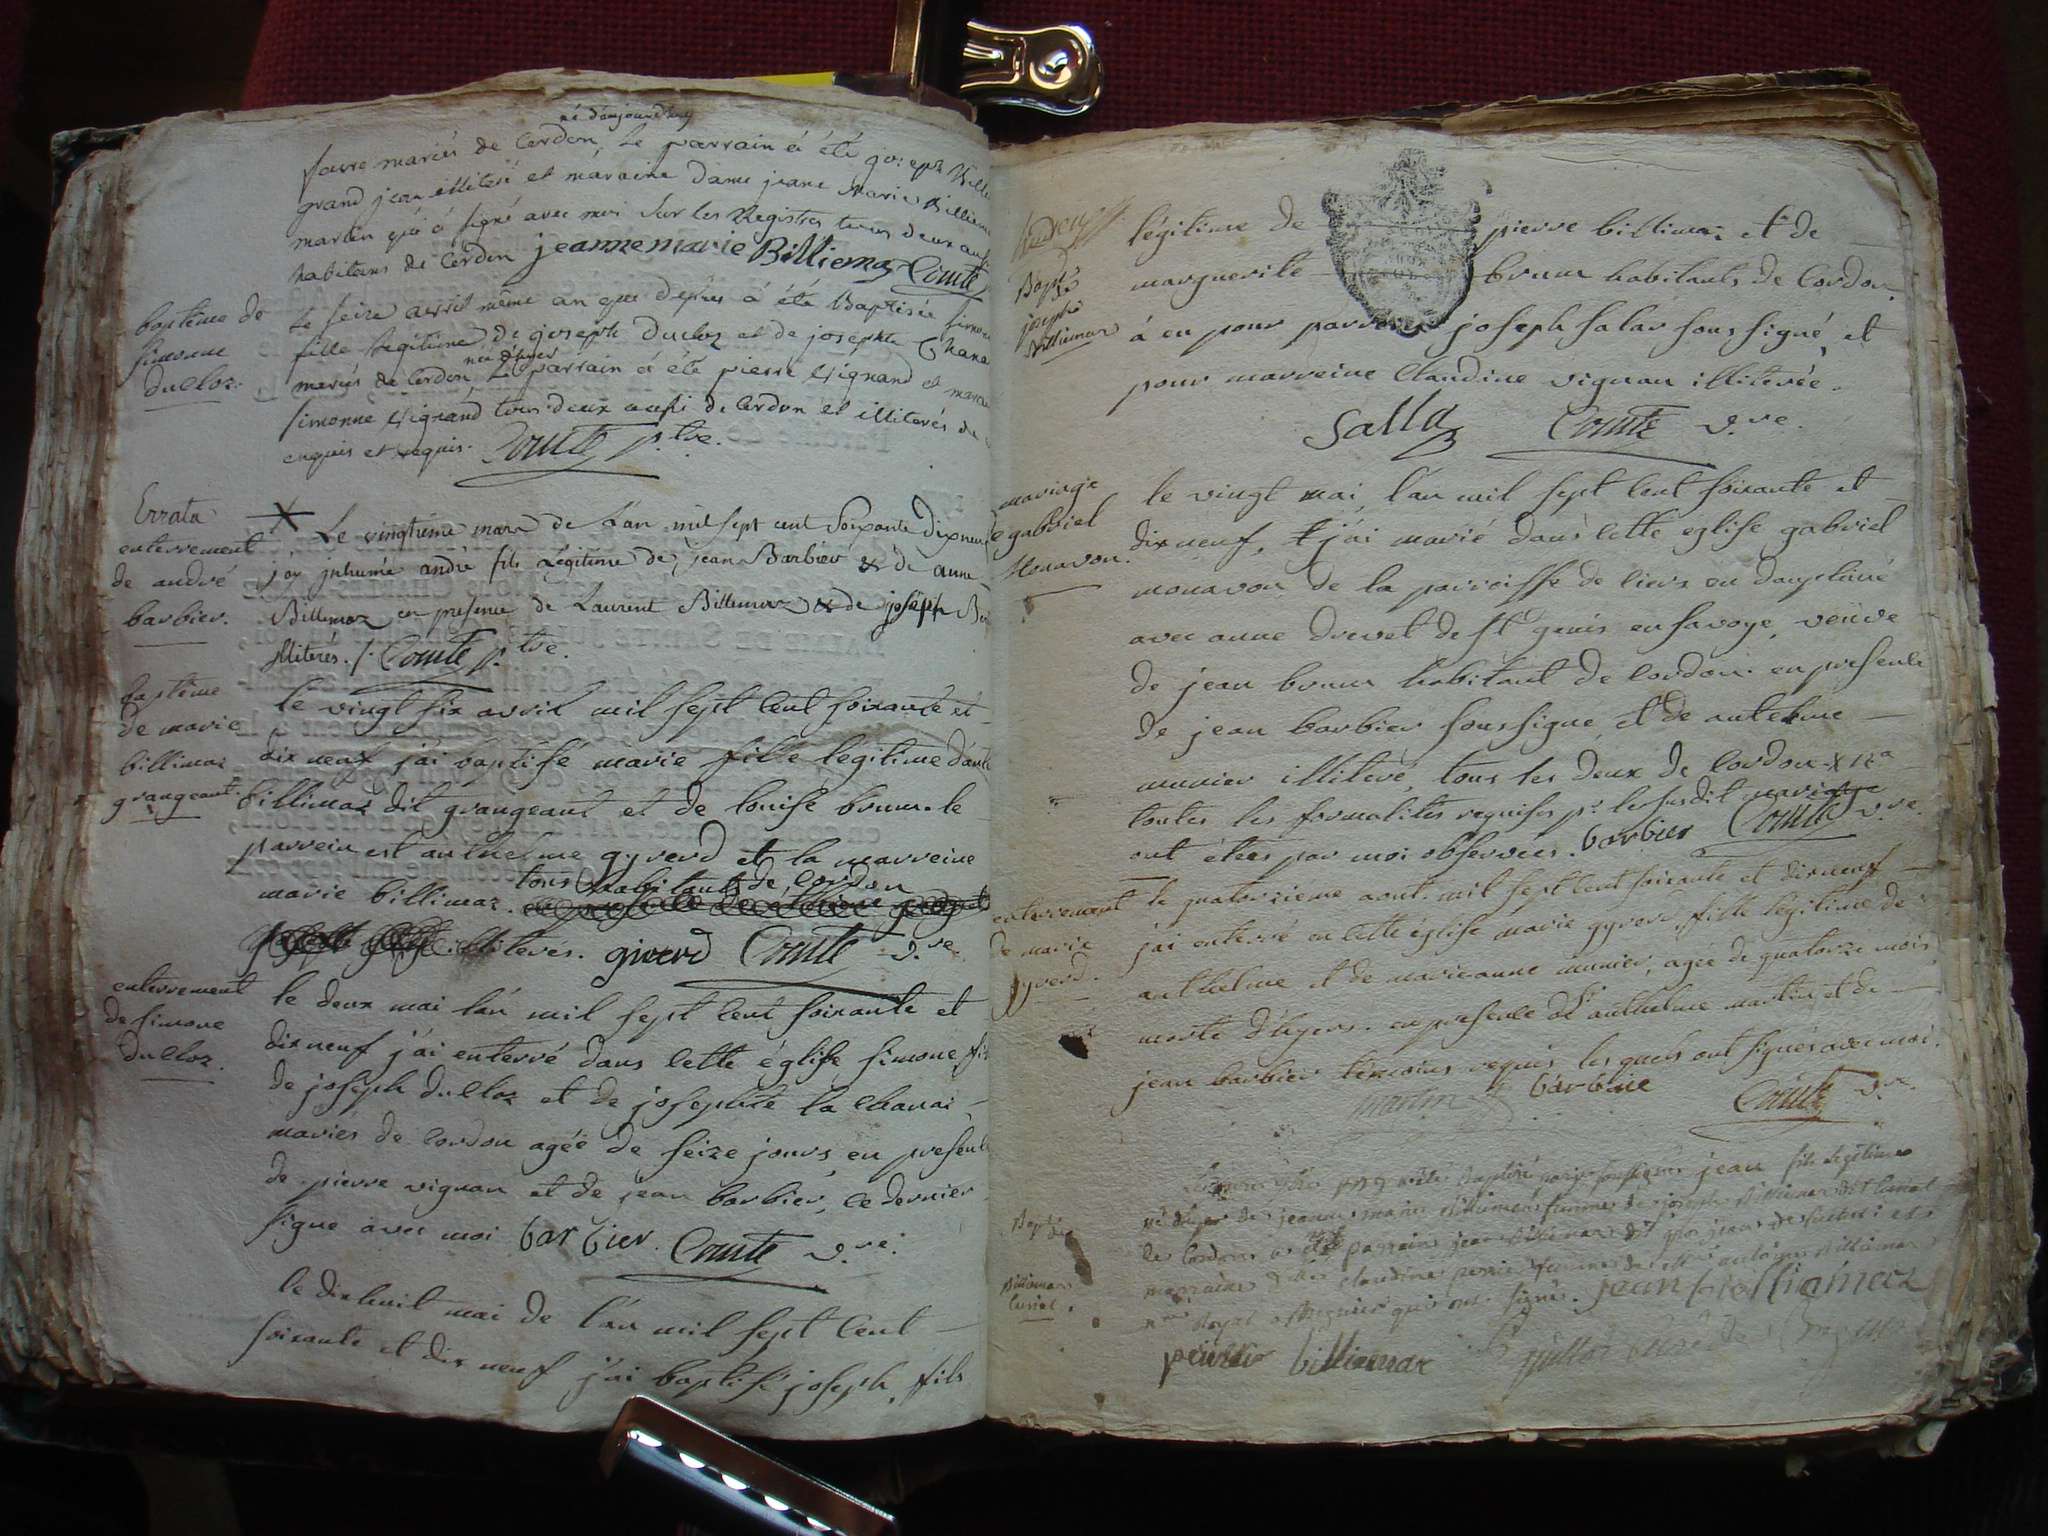 né d'aujourd'huy
favre mariés de Cordon, Le parrain á été joseph
grand jean illiteré et maraine dame jeane Marie Billiema
martin qui á signé avec moi Sur les Registres tous deux aussi
habitans de Cordon jeanne marie Billiemaz Comte
baptême de
simonne
Ducloz.
Le seize avril même an que dessus á été Baptisée simone
fille Legitime de joseph Ducloz et de josephte Chana
née d'hyer
mariés de Cordon Le parrain á été pierre Vignand et marai
simonne Vignand tous deux aussi de Cordon et illiterés de
enquis et requis. Comte p.tre.
Errata
enterrement
de andré
barbier.
Le vingtieme mars de L'an mil sept cent Soixante dixneuf
j'ay inhumé andré fils Légitime de jean Barbier & de anne
Billemaz en presence de Laurent Billemaz & de joseph
illiterés ./. Comte p.tre.
baptême
de marie
billimaz
grangeant.
le vingt six avril mil sept cent soixante et
dix neuf j'ai baptisé marie fille légitime d'ant
billimaz dit grangeant et de louise brun. le
parrein est anthelme gyrerd et la marreine
tous habitants de cordon
marie billimaz.
illiterés. girerd Comte v.re
enterrement
de simone
Ducloz.
le deux mai l'an mil sept cent soixante et
dix neuf j'ai enterré dans cette église simone, fil
de joseph ducloz et de josephte la chanai
mariés de cordon agée de seize jours en presence
de pierre vignan et de jean barbier, ce dernier
signe avec moi barbier. Comte v.re.
le dixhuit mai de l'an mil sept cent
soixante et dix neuf j'ai baptisé joseph, fils
Bapt.
de
joseph
billiemaz
légitime de pierre billimaz et de
marguerite brun habitants de Cordon.
á eu pour parrein joseph salar soussigné, et
pour marreine Claudine vignan illiterée.
Salla Comte v.re.
mariage
de gabriel
Monavon.
le vingt mai, l'an mil sept cent soixante et
dix neuf, j'ai marié dans cette eglise gabriel
monavon de la parroisse de liers en dauphiné
avec anne drevet de st genis en savoye, veuve
de jean brun habitant de cordon. en presence
de jean barbier soussigné, et de antelme
munier illiteré, tous les deux de cordon
toutes les formalités requises pr. le susdit mariage
ont étées par moi observées. barbier Comte v.re.
enterrement
de marie
gyrerd.
le quatorzieme aout mil sept cent soixante et dixneuf
j'ai enterré en cette église marie gyrerd, fille légitime de
anthelme et de marieanne munier, agée de quatorze mois,
morte d'hyers. en presence de Sr anthelme martin et de
jean barbier témoins requis les quels ont signés avec moi.
martin barbie Comte v.re.
Bapt.
de
Billiemaz
curial.
jean fils Legitime
né d'hyer de jeanne marie Billiemaz femme de joseph Billiemaz dit curial
de Cordon a été parrain jean Billiemaz dit gros jean
marraine Claudine perrier femme de antoine Billiemaz
qui ont signé. jean billiamacz
perrier billiemaz